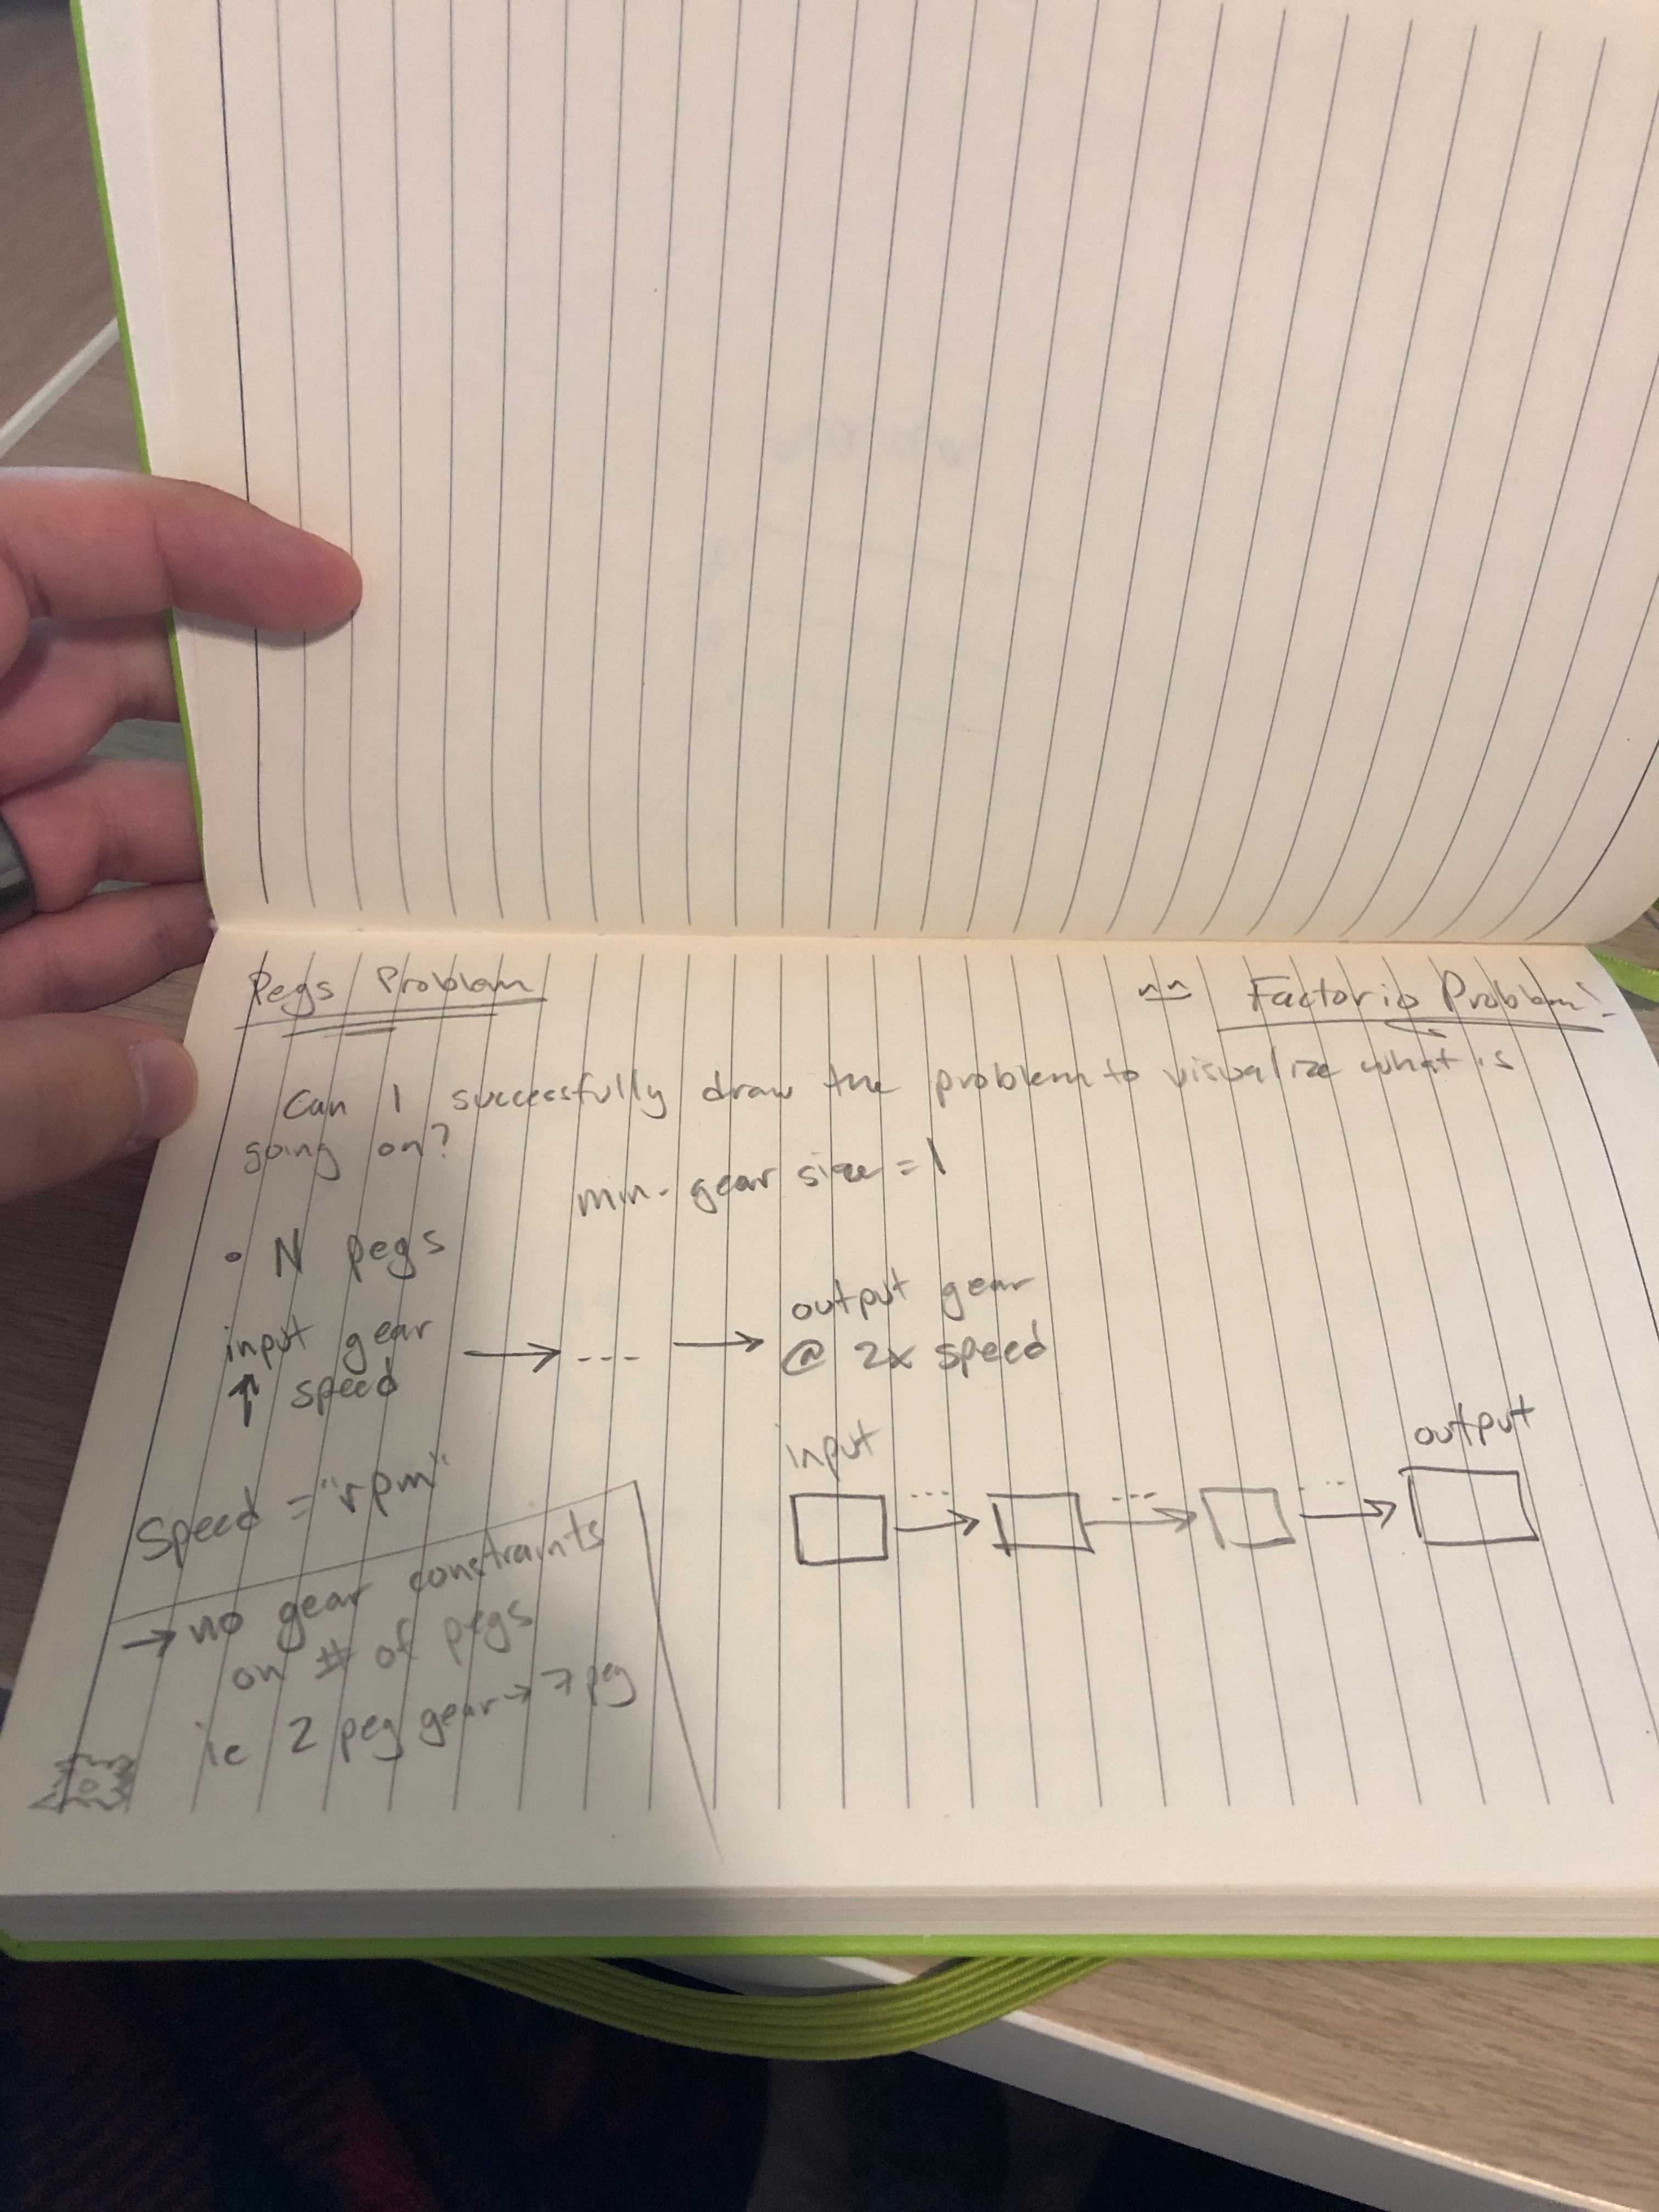 Pegs Problem
~~ Factorio Problem!
Can I successfully draw the problem to visualize what is
going on?
min. gear size = 1
• N pegs
input gear → --- → output gear
↑ speed
@ 2x speed
Speed = "rpm"
input
output
... → ... → ... →
→ no gear constraints
on # of pegs
ie 2 peg gear → 7 peg